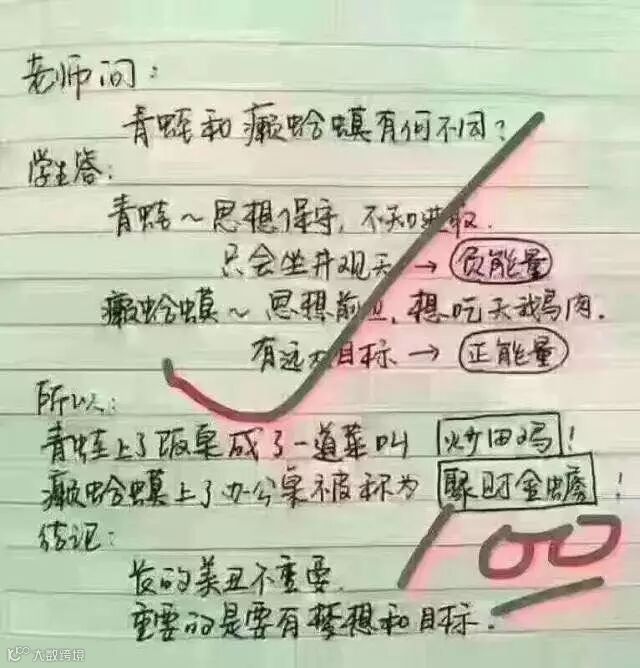 老师问：
青蛙和癞蛤蟆有何不同？
学生答：
青蛙～思想保守，不知进取．
只会坐井观天→负能量
癞蛤蟆～思想前卫，想吃天鹅肉．
有远大目标→正能量
所以：
青蛙上了饭桌成了一道菜叫 炒田鸡！
癞蛤蟆上了办公桌被称为 聚财金蟾！
结论：
长的美丑不重要．
重要的是要有梦想和目标．
100
大数跨境